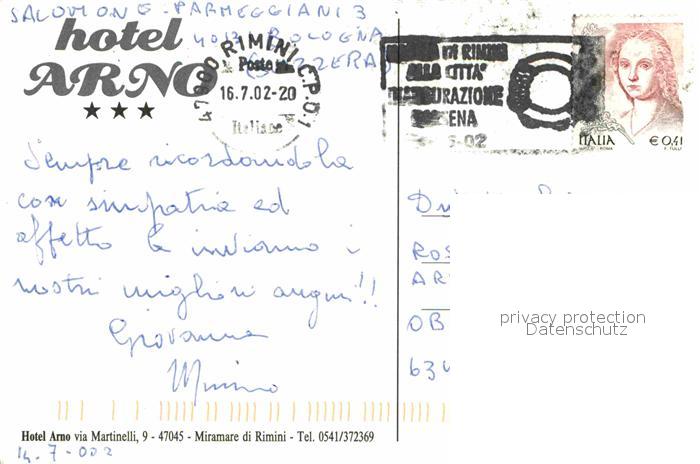 SALOMONE - PARMEGGIANI 3
hotel
40131 BOLOGNA
ARNO
★★★
47900 RIMINI C.P.O.
Poste
16.7.02-20
Italiane
RIMINI
ALLA CITTA'
02
ITALIA
€ 0,41
ROMA
Sempre ricordandola
con simpatia ed
affetto la inviamo i
nostri migliori auguri!!
Giovanna
Mimmo
ROS
AR
OB
634
privacy protection
Datenschutz
Hotel Arno via Martinelli, 9 - 47045 - Miramare di Rimini - Tel. 0541/372369
14-7-002